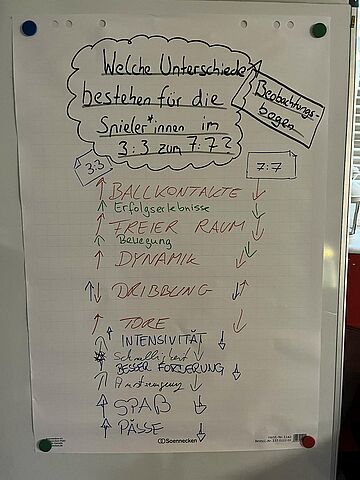 Welche Unterschiede
bestehen für die
Spieler*innen im
3:3 zum 7:7?
Beobachtungs-
bogen
3:3
7:7
↑ BALLKONTAKTE ↓
↑ Erfolgserlebnisse ↓
↑ FREIER RAUM ↓
↑ Bewegung ↓
↑ DYNAMIK ↓
↑↓ DRIBBLING ↓↑
↑ TORE ↓
↑ INTENSIVITÄT ↓
Schnelligkeit ↓
BESSER FÖRDERUNG ↓
↑ Anstrengung ↓
↑ SPAß ↓
↑ PÄSSE ↓
Soennecken